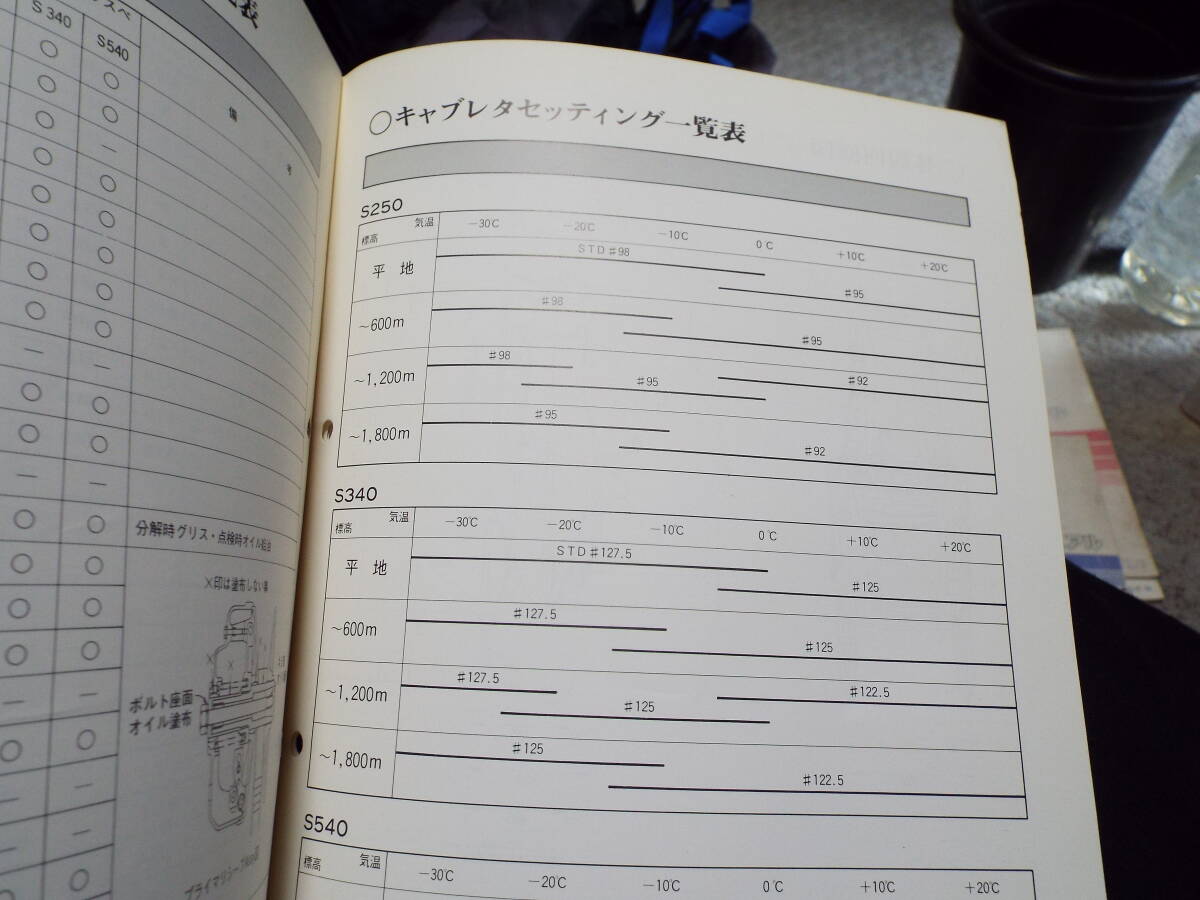 S340
S540
備
考
分解時グリス・点検時オイル給油
×印は塗布しない事
ボルト座面
オイル塗布
○キャブレタセッティング一覧表
S250
気温
標高
−30℃ −20℃ −10℃ 0℃ +10℃ +20℃
平地
STD#98
#95
~600m
#98
#95
~1,200m
#98
#95
#92
~1,800m
#95
#92
S340
気温
標高
−30℃ −20℃ −10℃ 0℃ +10℃ +20℃
平地
STD#127.5
#125
~600m
#127.5
#125
~1,200m
#127.5
#125
#122.5
~1,800m
#125
#122.5
S540
気温
標高
−30℃ −20℃ −10℃ 0℃ +10℃ +20℃